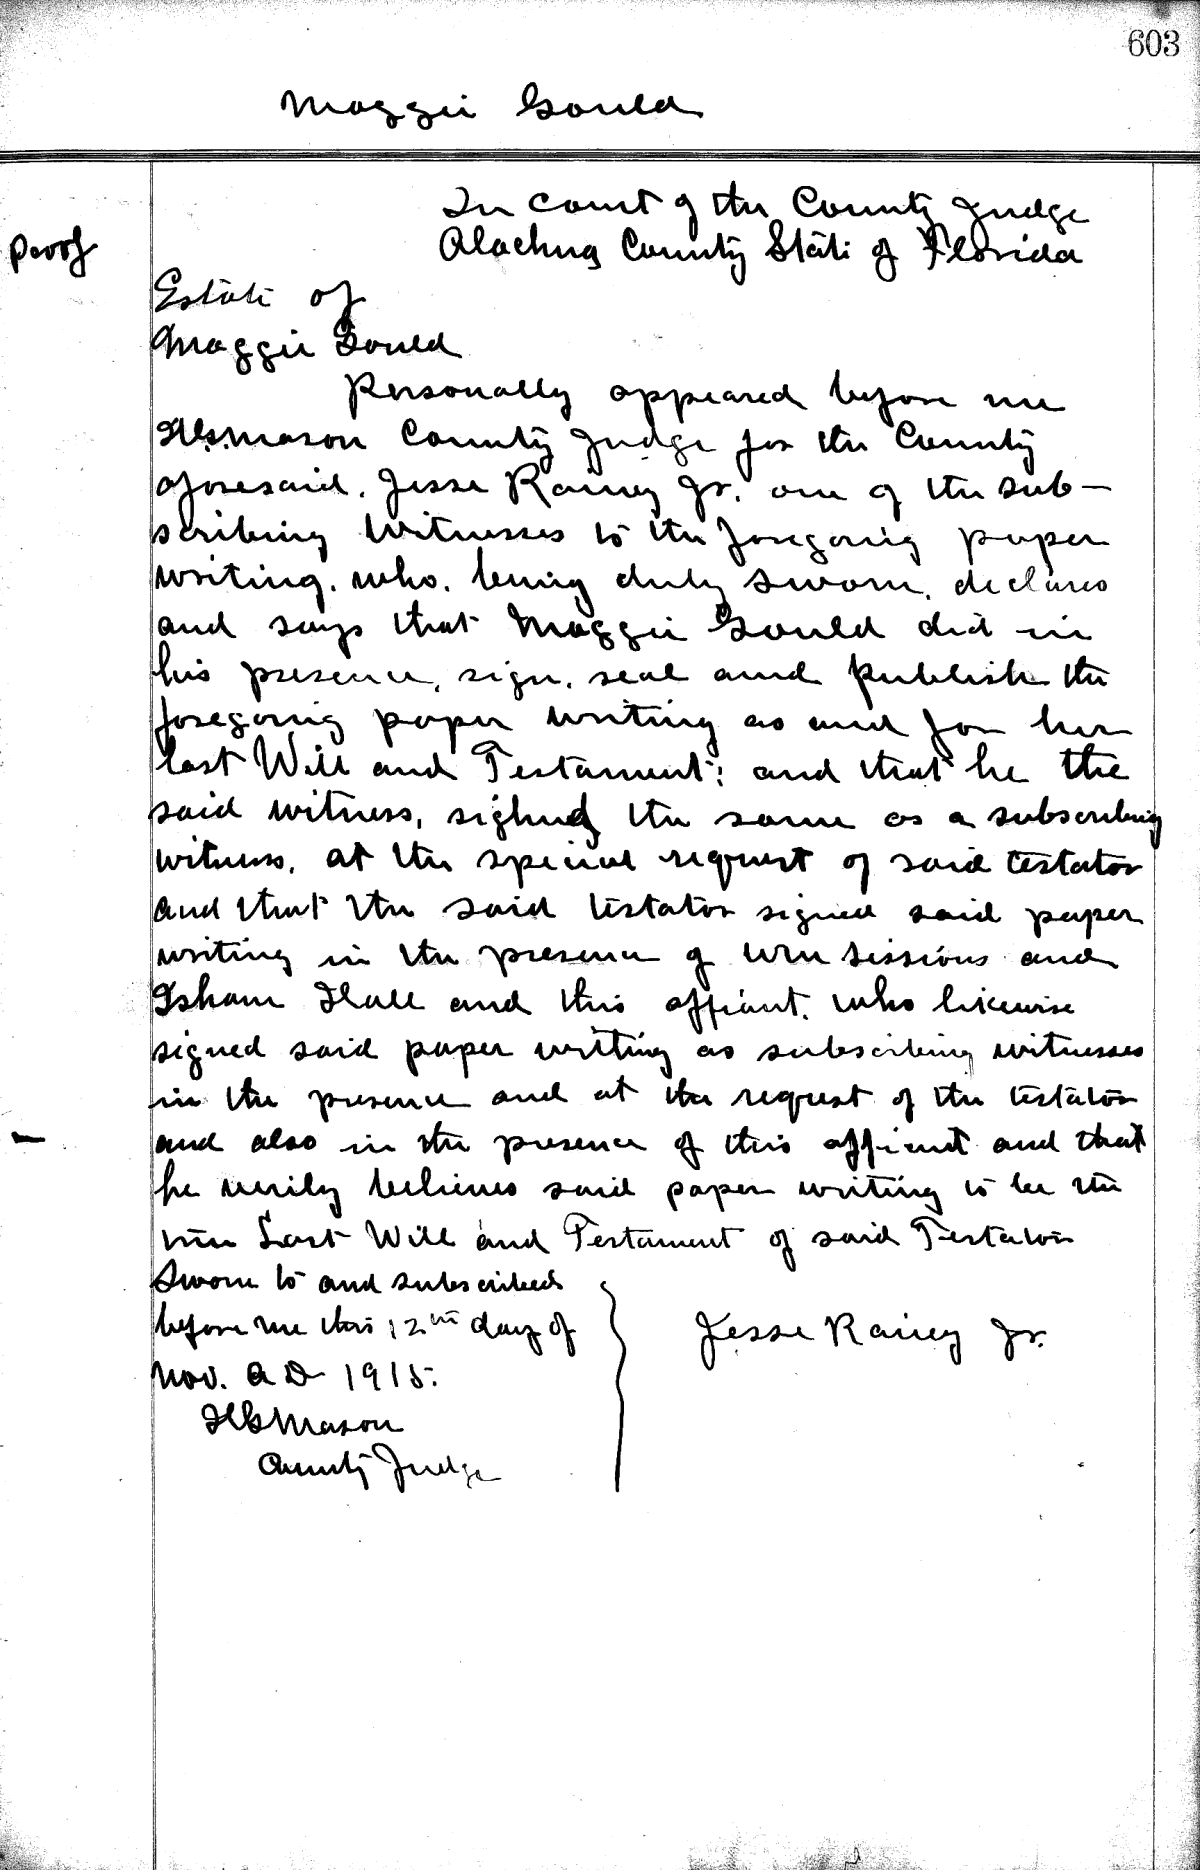 603
Maggie Gould
In court of the County Judge
Proof
Alachua County State of Florida
Estate of
Maggie Gould
Personally appeared before me
H.G. Mason County Judge for the County
aforesaid. Jesse Rainey Jr. one of the sub-
scribing Witnesses to the foregoing paper
writing, who, being duly sworn, declares
and says that Maggie Gould did in
his presence, sign, seal and Publish the
foregoing paper writing as and for her
last Will and Testament; and that he the
said witness, signed the same as a subscribing
witness, at the special request of said testator
and that the said testator signed said paper
writing in the presence of Wm Sessions and
Isham Hall and this affiant, who likewise
signed said paper writing as subscribing witnesses
in the presence and at the request of the testator
and also in the presence of this affiant and that
he verily believes said paper writing to be the
true Last Will and Testament of said Testator
Sworn to and subscribed
before me this 12th day of
Jesse Rainey Jr.
Nov. A D 1915.
H G Mason
County Judge